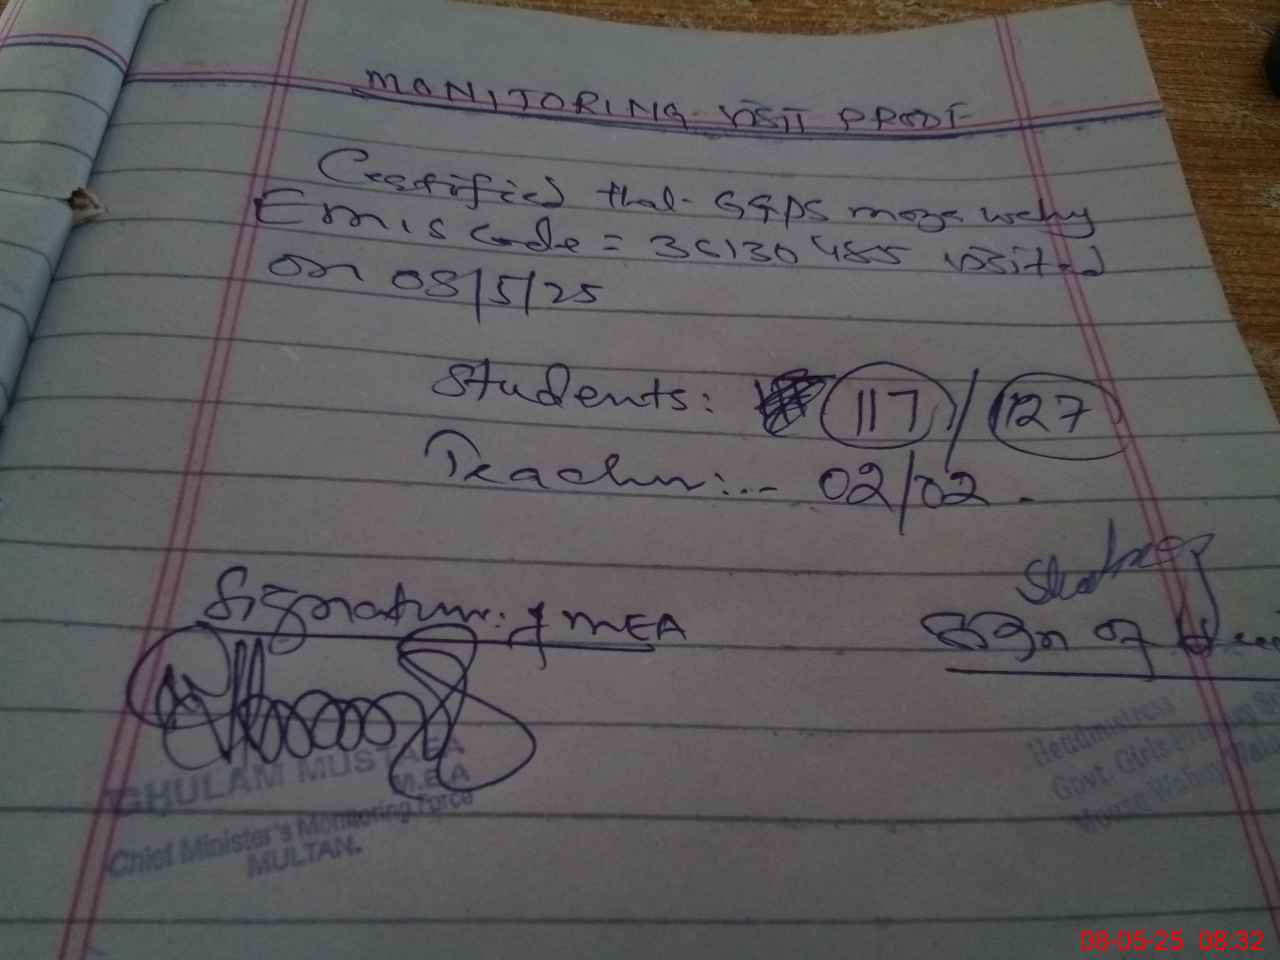 MONITORING VISIT PROOF
Certified that GGPS moza wehy
Emis code = 36130485 visited
on 08/5/25
Students: 117 / 127
Teacher:- 02/02
Signature: of MEA
Sign of
GHULAM MUSTAFA
M.E.A
Chief Minister's Monitoring Force
MULTAN.
Headmistress
Govt. Girls
08-05-25 08:32